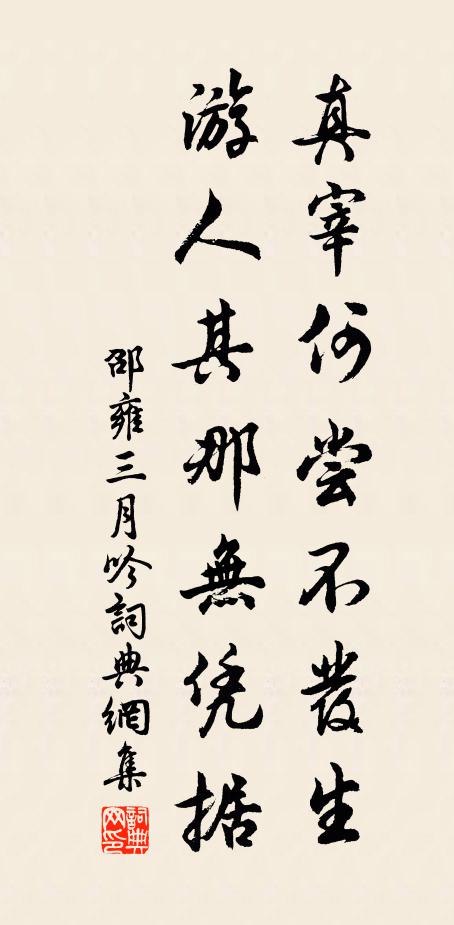 真宰何尝不發生
游人其那無凭据
邵雍三月吟詞典網集
詞典網印